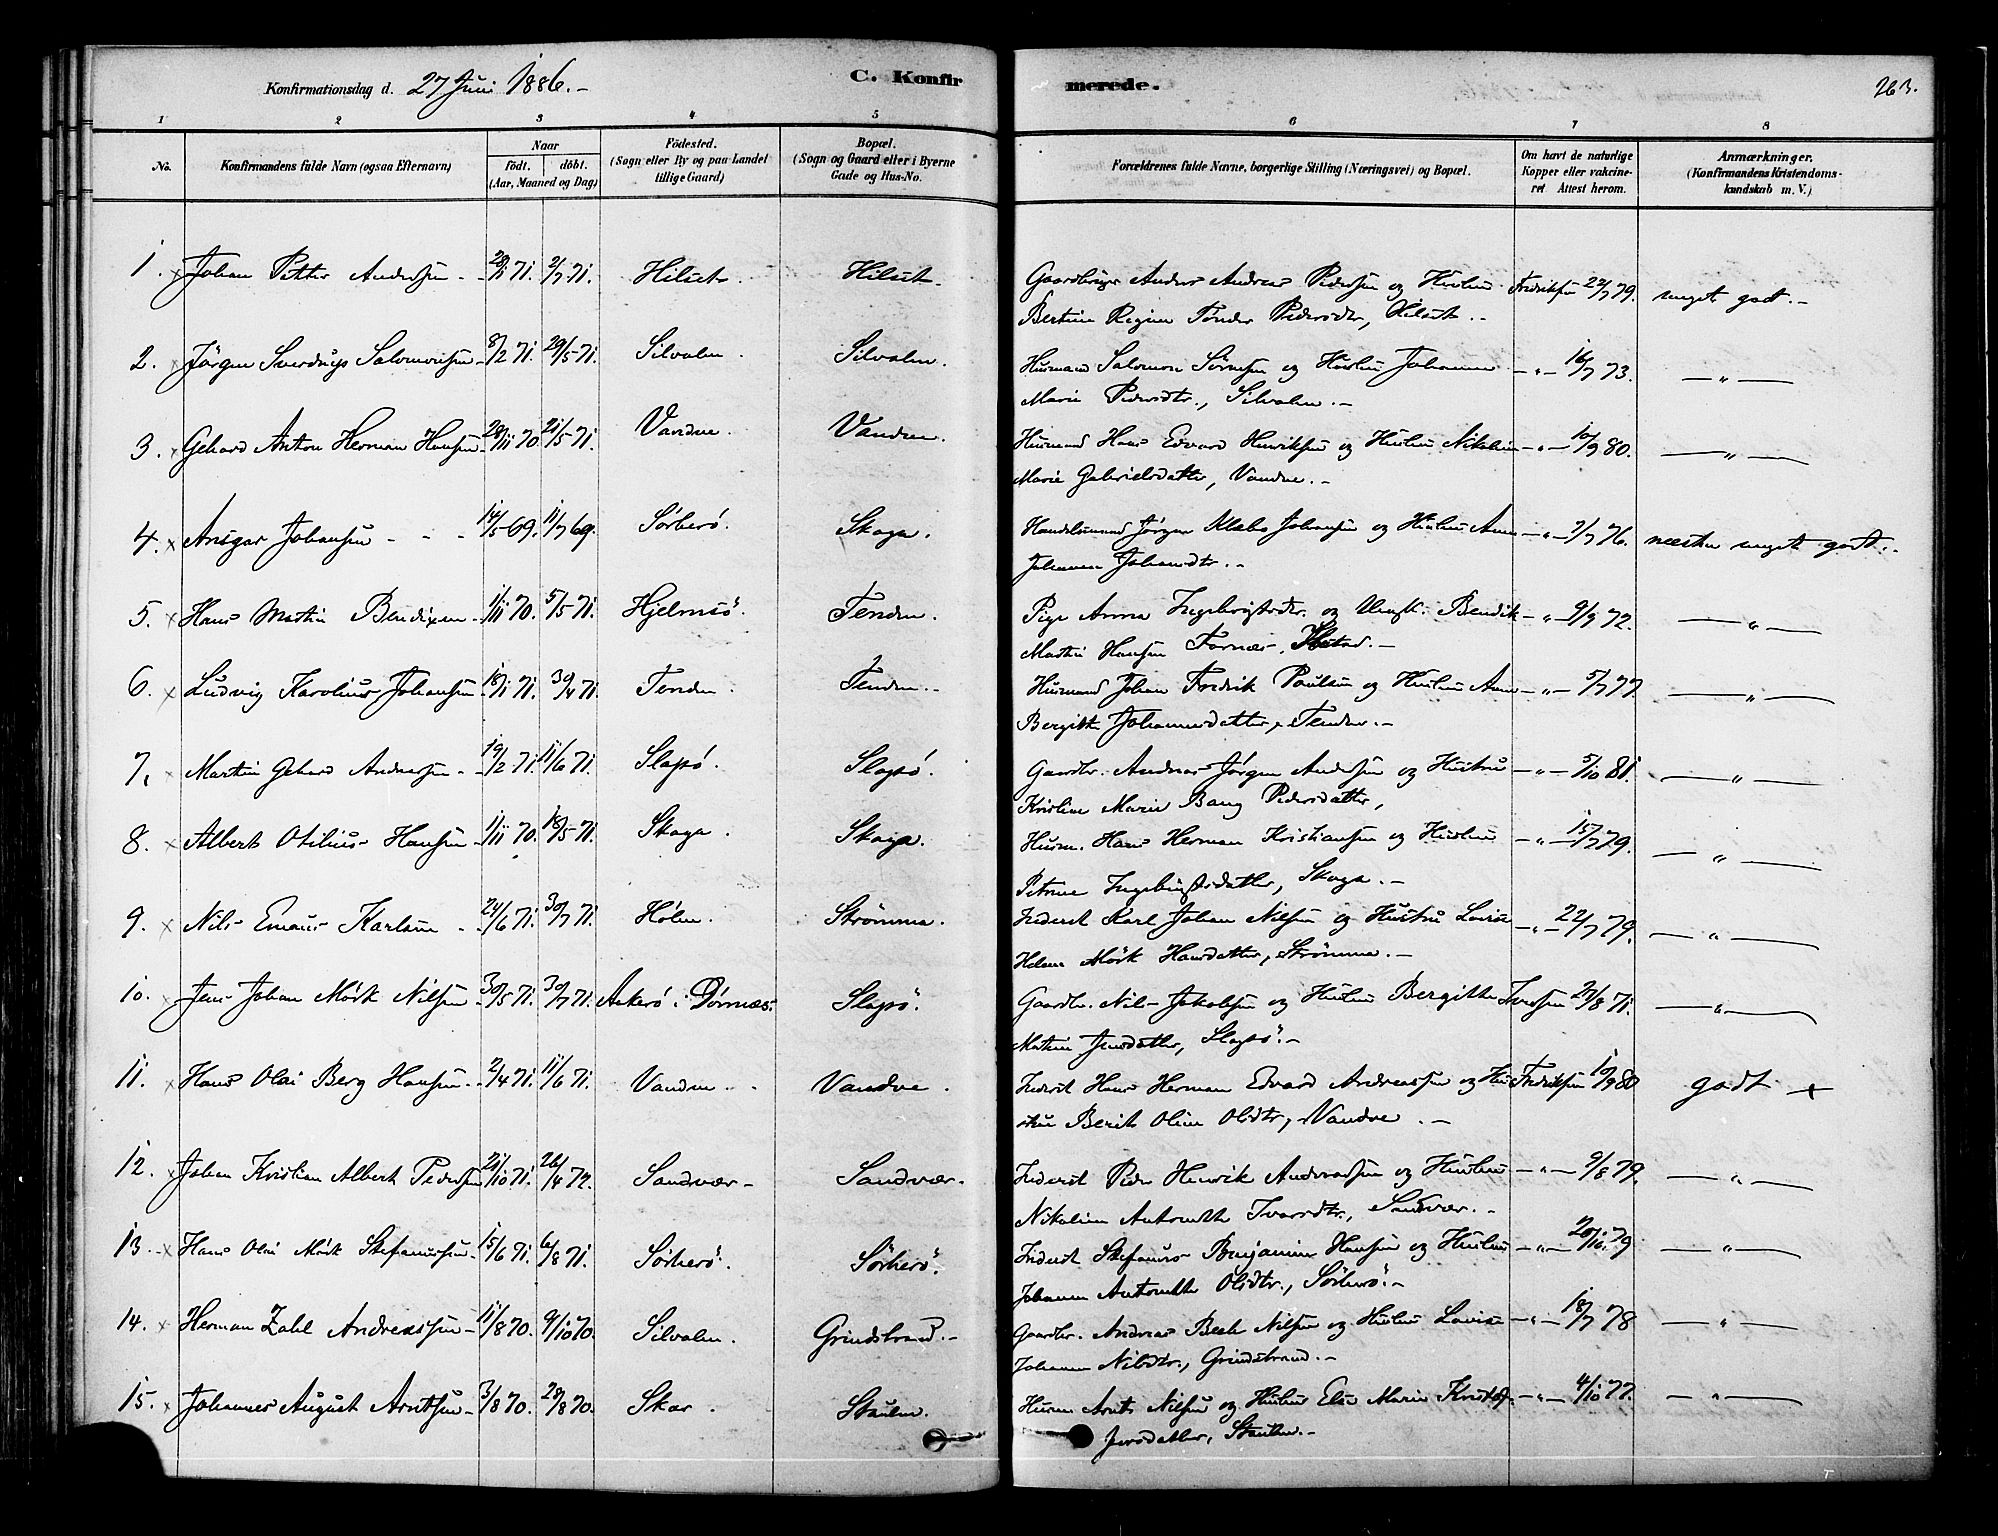 Konfirmationsdag d. 27 Juni 1886.-
C. Konfirmerede.
263.
1 2 3 4 5 6 7 8
No.
Konfirmandens fulde Navn (ogsaa Efternavn)
Naar
födt. döbt.
(Aar, Maaned og Dag)
Födested.
(Sogn eller By og paa Landet
tillige Gaard)
Bopæl.
(Sogn og Gaard eller i Byerne
Gade og Hus-No.
Forældrenes fulde Navne, borgerlige Stilling (Næringsvei) og Bopæl.
Om havt de naturlige
Kopper eller vakcine-
ret Attest herom.
Anmærkninger.
(Konfirmandens Kristendoms-
kundskab m. V.)
1. x Johan Petter Andersen - 2/7 71. Hilset. Hilset. Gaardbruger Anders Andreas Pedersen og Hustru Fredriksen 79. meget godt.-
Bertine Regine Tønder Pedersdtr, Hilset.-
2. x Jörgen Sverdrup Salomonsen - 8/2 71. 29/5 71. Silvalen. Silvalen. Husmand Salomon Sørensen og Hustru Johanna -"- 16/7 73. -"-
Marie Pedersdtr., Silvalen.-
3. x Gehard Anton Herman Hansen 28/11 70. 21/5 71. Vandve. Vandve. Husmand Hans Edvard Henriksen og Hustru Nikoline -"- 10/9 80. -"-
Marie Gabrielsdatter, Vandve.-
4. x Ansgar Johansen - - - 14/5 69. 11/7 69. Sörherö. Skaga. Handelsmand Jørgen Klæbo Johansen og Hustru Anne -"- 7/7 76. næsten meget godt.-
Johanna Johansdtr.-
5. x Hans Martin Bendixen - 1/11 70. 5/5 71. Hjelmsö. Tenden. Pige Anna Ingebrigtsdtr. og Ungk. Bendik -"- 9/9 72. -"-
Martin Hansen Fornæs,
6. x Ludvig Karolius Johansen - 18/1 71. 30/4 71. Tenden. Tenden. Husmand Johan Fredrik Paulsen og Hustru Anne -"- 5/7 77. -"-
Bergitte Johannesdatter, Tenden.-
7. x Martin Gehard Andersen - 19/2 71. 11/6 71. Slapö. Slapö. Gaardbr. Andreas Jörgen Andersen og Hustru -"- 5/10 81. -"-
Kristine Marie Bang Pedersdatter,
8. x Albert Otilius Hansen - 1/11 70. 18/5 71. Skaga. Skaga. Husm. Hans Herman Kristiansen og Hustru -"- 15/7 79. -"-
Petrine Ingebrigtsdatter, Skaga.-
9. x Nils Emaus Karlsen - 24/6 71. 30/7 71. Hólen. Strömma. Inderst Karl Johan Nilsen og Hustru Lovise -"- 22/7 79. -"-
Helene Mörk Hansdatter, Strömma.-
10. x Jens Johan Mörk Nilsen 30/5 71. 30/7 71. Akerö i Dönnæs. Slapö. Gaardbr. Nils Jakobsen og Hustru Bergitte 71. -"-
Martine Jensdatter, Slapö.-
11. x Hans Olai Berg Hansen - 2/4 71. 11/6 71. Vandve. Vandve. Inderst Hans Herman Edvard Andreassen og Hu- Fredriksen 10/9 80 godt x
stru Berit Oline Olsdtr, Vandve.-
12. x Johan Kristian Albert Pedersen 21/10 71. 26/4 72. Sandvær - Sandvær. Inderst Peder Henrik Andreassen og Hustru -"- 9/8 79. -"-
Nikoline Antonette Ivarsdtr., Sandvær.-
13. x Hans Olai Mörk Stefanussen 15/6 71. 6/8 71. Sörherö. Sörherö. Inderst Stefanus Benjamin Hansen og Hustru -"- 20/10 79 -"-
Johanna Antonette Olsdtr., Sörherö.-
14. x Herman Zahl Andreassen - 11/8 70. 9/10 70. Silvalen. Grindstrand.- Gaardbr. Andreas Bech Nilsen og Hustru Lovise -"- 18/7 78 -"-
Johanna Nilsdtr., Grindstrand.-
15. x Johannes August Arntsen - 3/8 70. 28/8 70. Skar. Staulen. Husm. Arnt Nilsen og Hustru Else Marie Kristof- -"- 4/10 77. -"-
fersdatter, Staulen.-